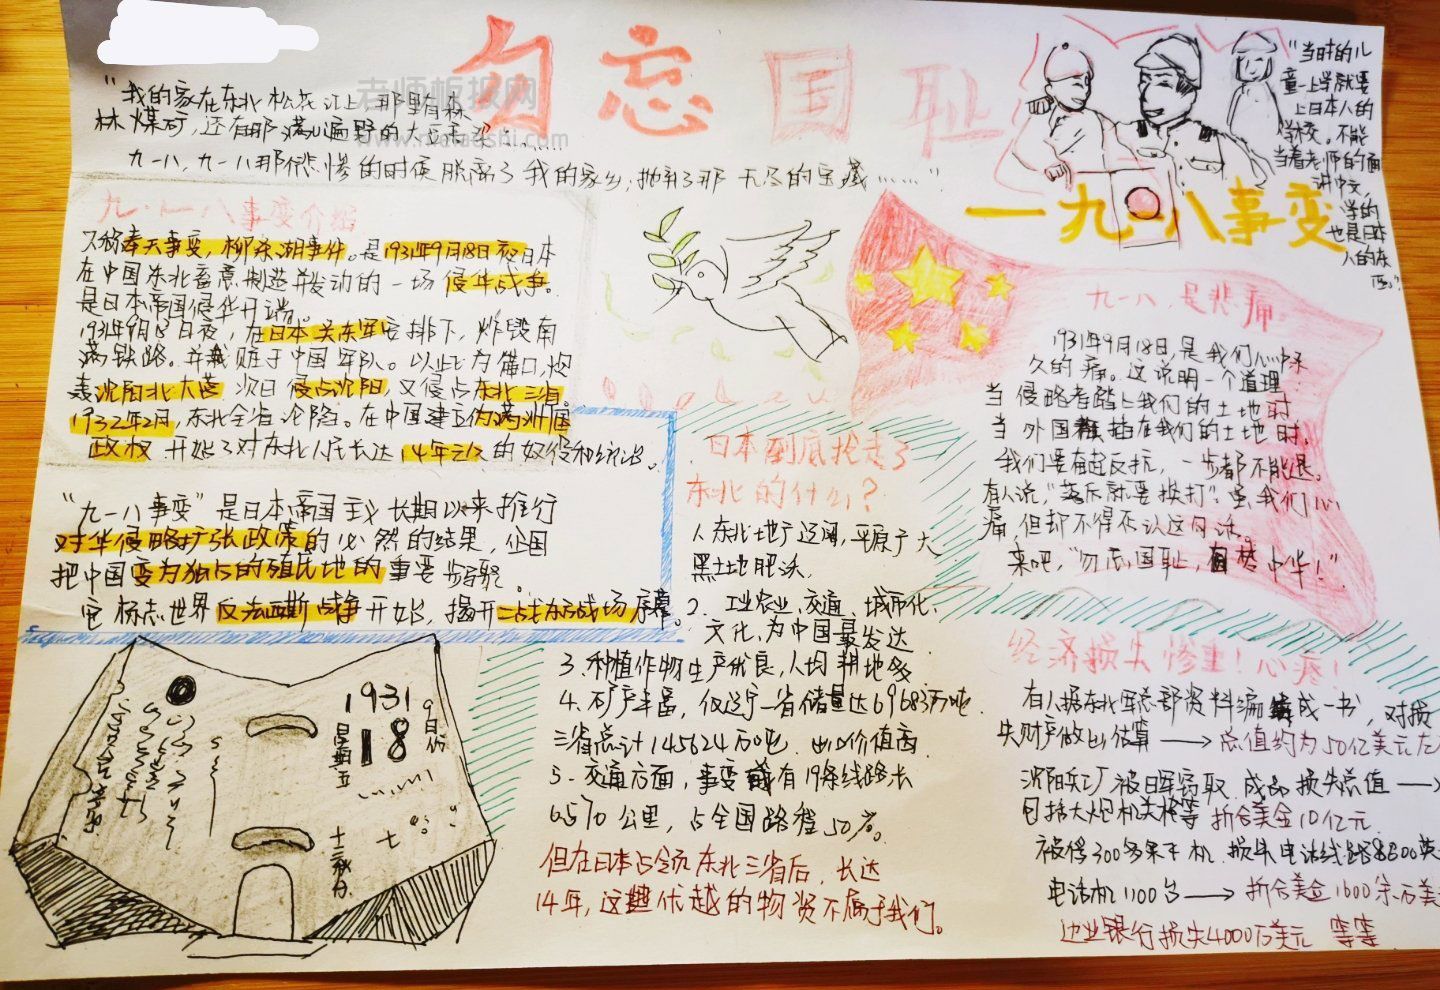 勿忘国耻
老师板报网
"我的家在东北松花江上,那里有森
林煤矿,还有那满山遍野的大豆高粱
九一八,九一八那悲惨的时候脱离了我的家乡,抛弃了那无尽的宝藏……"
"当时的儿
童一上学就要
上日本人的
学校。不能
当着老师的面
讲中文,
学的
也是日本
人的东
西。"
一九一八事变
九·一八事变介绍
又称奉天事变,柳条湖事件。是1931年9月18日夜日本
在中国东北蓄意制造并发动的一场侵华战争。
是日本帝国侵华开端。
1931年9月18日夜,在日本关东军安排下,炸毁南
满铁路。并栽赃于中国军队。以此为借口,炮
轰沈阳北大营 次日侵占沈阳,又侵占东北三省
1932年2月,东北全省沦陷。在中国建立伪满州国
政权 开始了对东北人民长达14年之久的奴役和统治。
"九一八事变"是日本帝国主义长期以来推行
对华侵略扩张政策的必然的结果,企图
把中国变为独占的殖民地的重要步骤。
它标志世界反法西斯战争开始,揭开二战东方战场序幕。
1931
9月份
18
星期五
十三秋分
七
日本到底抢走了
东北的什么?
1、东北地广辽阔,平原广大
黑土地肥沃。
2、工业农业、交通、城市化、
文化,为中国最发达
3.种植作物生产优良,人均耕地多
4.矿产丰富,仅辽宁一省储量达69683万吨.
三省总计145624万吨.出口价值高
5、交通方面,事变前有19条线路长
6570公里,占全国路程50%。
但在日本占领东北三省后,长达
14年,这些优越的物资不属于我们。
九一八,是悲痛
1931年9月18日,是我们心中永
久的痛。这说明一个道理:
当侵略者踏上我们的土地时
当外国旗插在我们的土地时。
我们要奋起反抗,一步都不能退。
有人说,"落后就要挨打",虽我们心
痛,但却不得不认这句话。
来吧,"勿忘国耻,中华!"
经济损失惨重!心疼!
有人据东北军总部资料编成一书,对损
失财产做出估算→总值约为50亿美元左
沈阳兵工厂被日窃取.成品损失总值→
包括大炮机关枪等 折合美金10亿元.
被俘300多架飞机.损失电话线路8800英
电话机1100台→折合美金1600余万美
边业银行损失4000万美元 等等